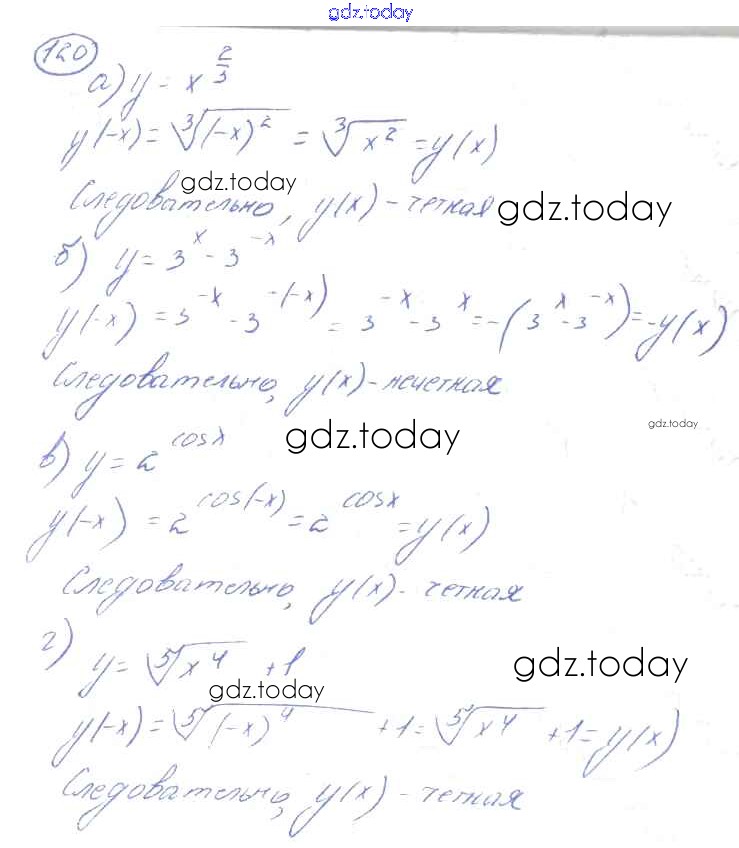 gdz.today
120
а) y = x^(2/3)
y(-x) = ∛(-x)² = ∛x² = y(x)
gdz.today
Следовательно, y(x) - четная gdz.today
б) y = 3^x - 3^(-x)
y(-x) = 3^(-x) - 3^(-(-x)) = 3^(-x) - 3^x = -(3^x - 3^(-x)) = -y(x)
Следовательно, y(x) - нечетная
gdz.today
в) y = 2^(cosx) gdz.today
y(-x) = 2^(cos(-x)) = 2^(cosx) = y(x)
Следовательно, y(x) - четная
г) y = ⁵√x⁴ + 1 gdz.today
gdz.today
y(-x) = ⁵√(-x)⁴ + 1 = ⁵√x⁴ + 1 = y(x)
Следовательно, y(x) - четная